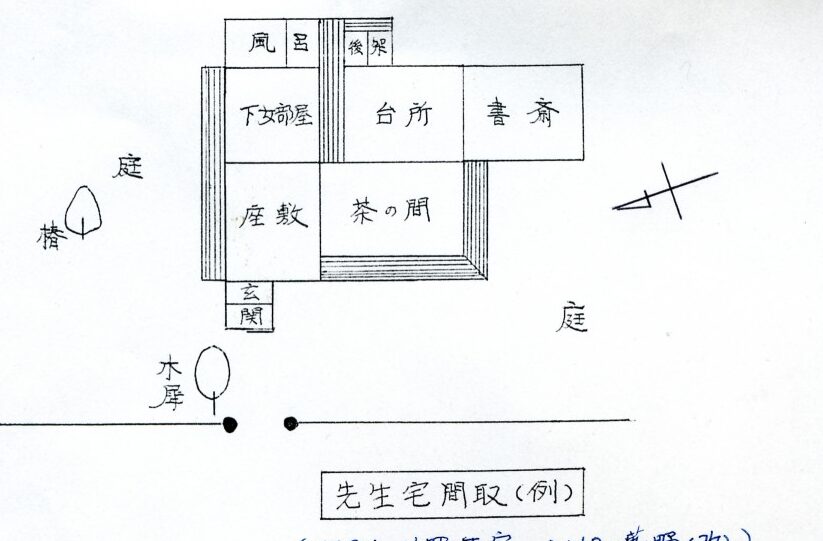 風呂
後架
下女部屋
台所
書斎
庭
椿
座敷
茶の間
玄関
庭
木犀
先生宅間取(例)